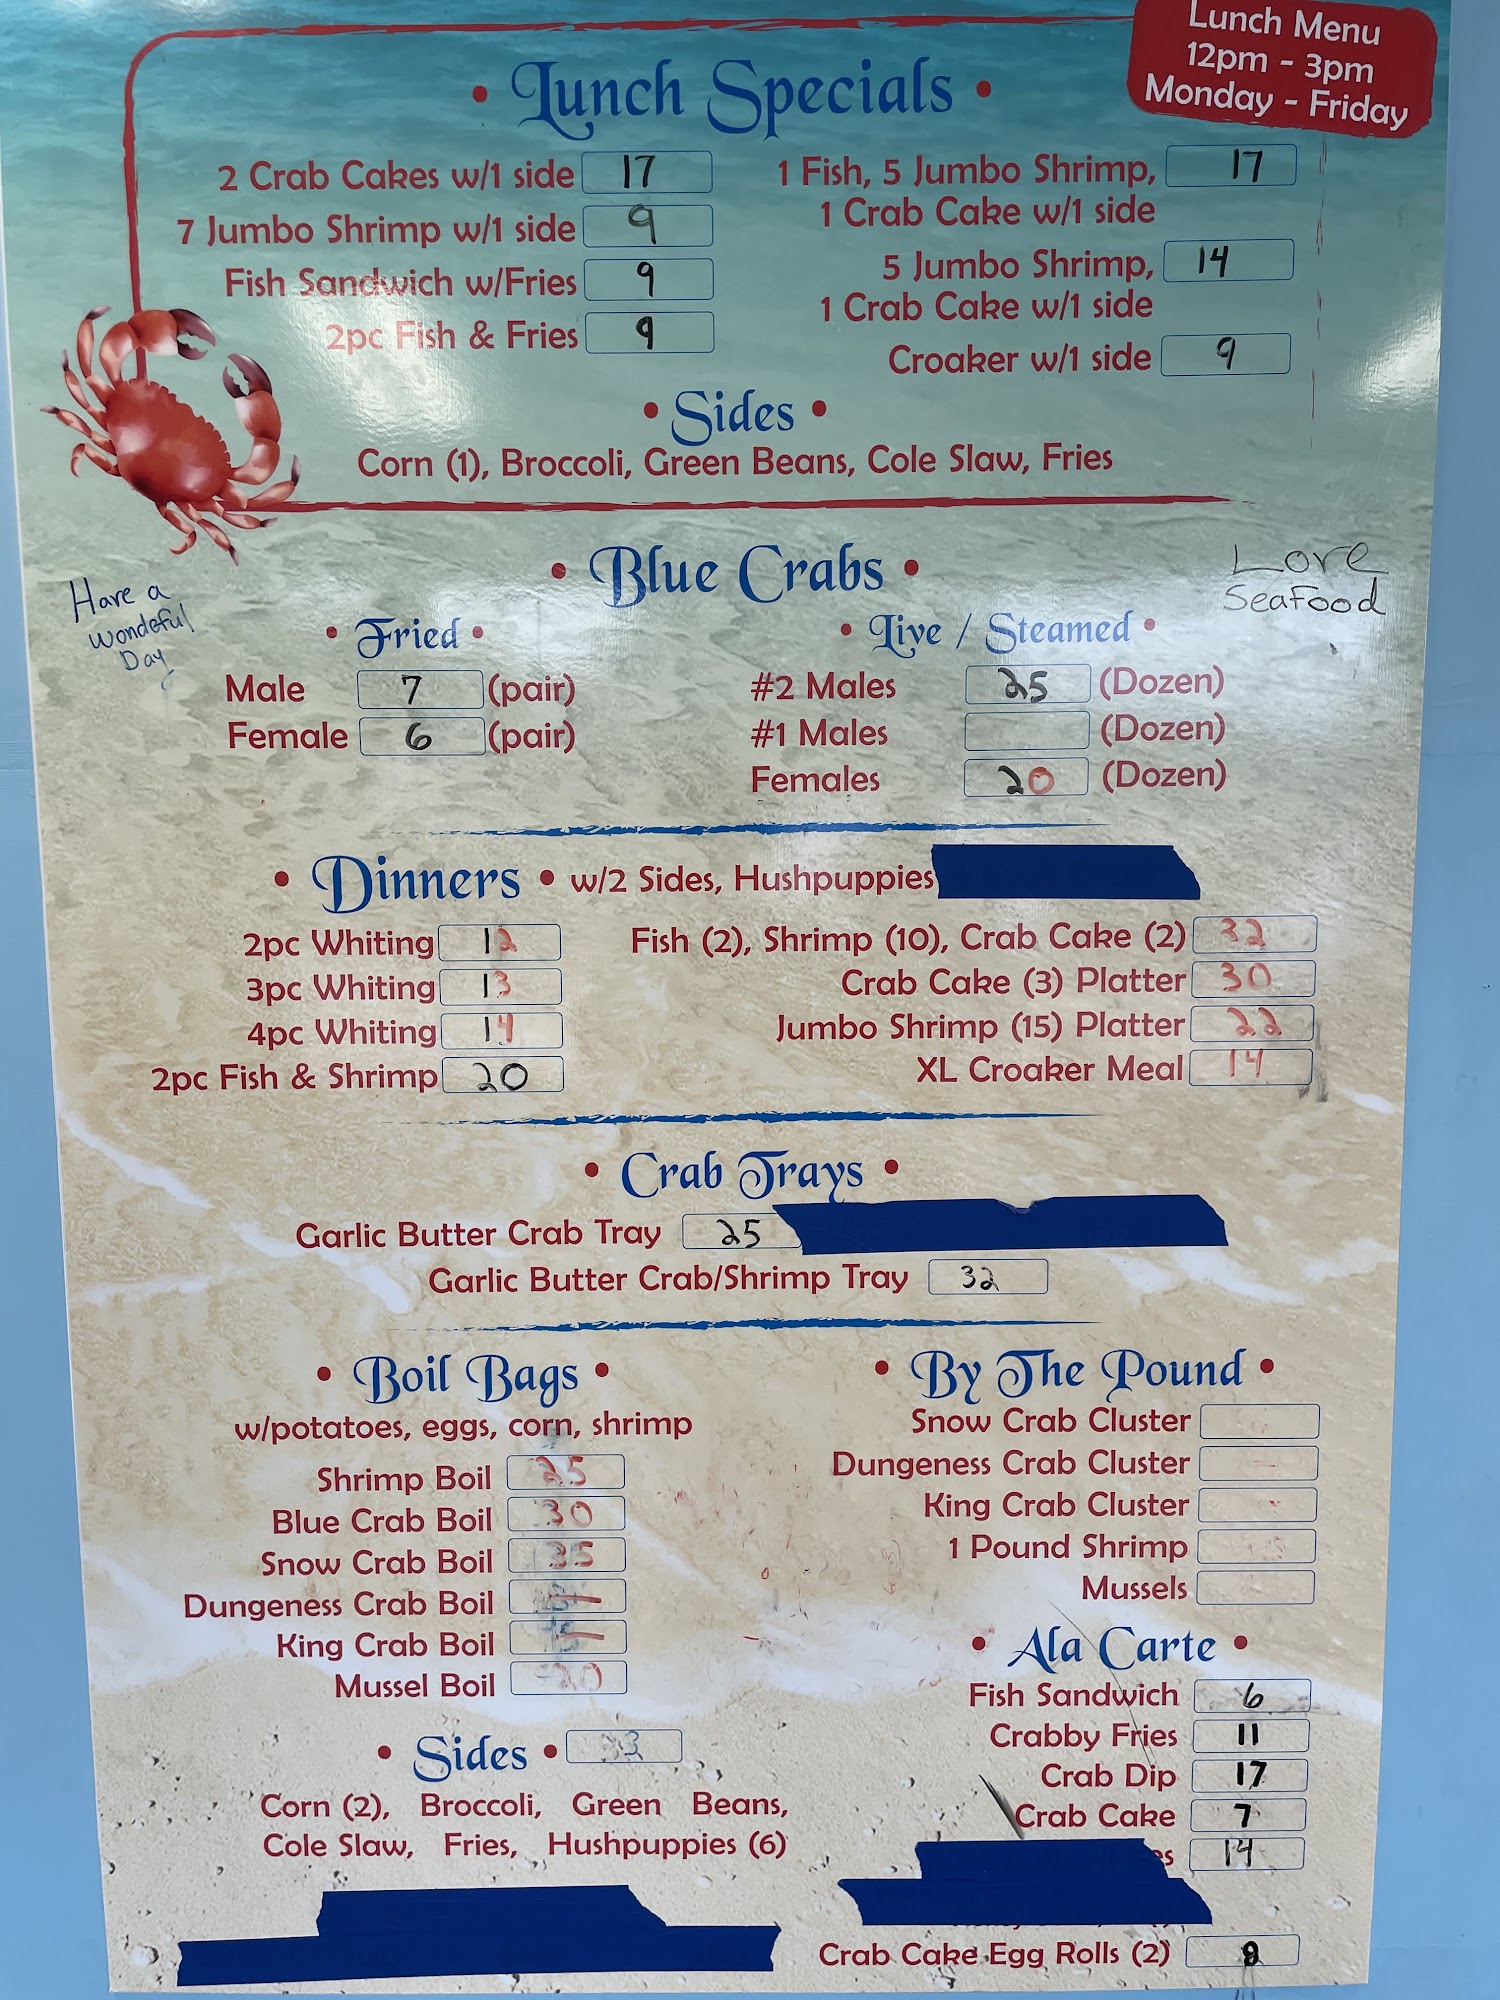 Lunch Menu
12pm - 3pm
Monday - Friday
• Lunch Specials •
2 Crab Cakes w/1 side 17
7 Jumbo Shrimp w/1 side 9
Fish Sandwich w/Fries 9
2pc Fish & Fries 9
1 Fish, 5 Jumbo Shrimp, 17
1 Crab Cake w/1 side
5 Jumbo Shrimp, 14
1 Crab Cake w/1 side
Croaker w/1 side 9
• Sides •
Corn (1), Broccoli, Green Beans, Cole Slaw, Fries
• Blue Crabs •
Have a
wondeful
Day
Love
Seafood
• Fried •
Male 7 (pair)
Female 6 (pair)
• Live / Steamed •
#2 Males 25 (Dozen)
#1 Males (Dozen)
Females 20 (Dozen)
• Dinners • w/2 Sides, Hushpuppies
2pc Whiting 12
3pc Whiting 13
4pc Whiting 14
2pc Fish & Shrimp 20
Fish (2), Shrimp (10), Crab Cake (2) 32
Crab Cake (3) Platter 30
Jumbo Shrimp (15) Platter 22
XL Croaker Meal 14
• Crab Trays •
Garlic Butter Crab Tray 25
Garlic Butter Crab/Shrimp Tray 32
• Boil Bags •
w/potatoes, eggs, corn, shrimp
Shrimp Boil 25
Blue Crab Boil 30
Snow Crab Boil 35
Dungeness Crab Boil
King Crab Boil
Mussel Boil 20
• Sides •
Corn (2), Broccoli, Green Beans,
Cole Slaw, Fries, Hushpuppies (6)
• By The Pound •
Snow Crab Cluster
Dungeness Crab Cluster
King Crab Cluster
1 Pound Shrimp
Mussels
• Ala Carte •
Fish Sandwich 6
Crabby Fries 11
Crab Dip 17
Crab Cake 7
14
Crab Cake Egg Rolls (2) 9